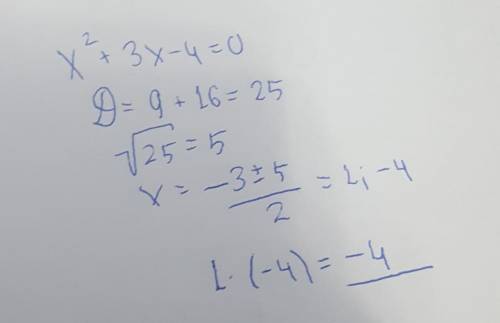 x² + 3x - 4 = 0
D = 9 + 16 = 25
√25 = 5
x = (-3 ± 5)/2 = 1; -4
1 · (-4) = -4